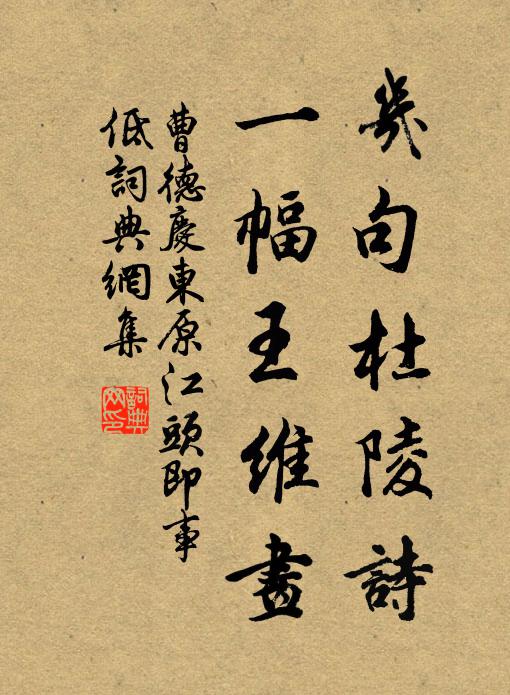 幾句杜陵詩
一幅王維畫
曹德慶東原江頭即事
低詞典網集
詞典
网印